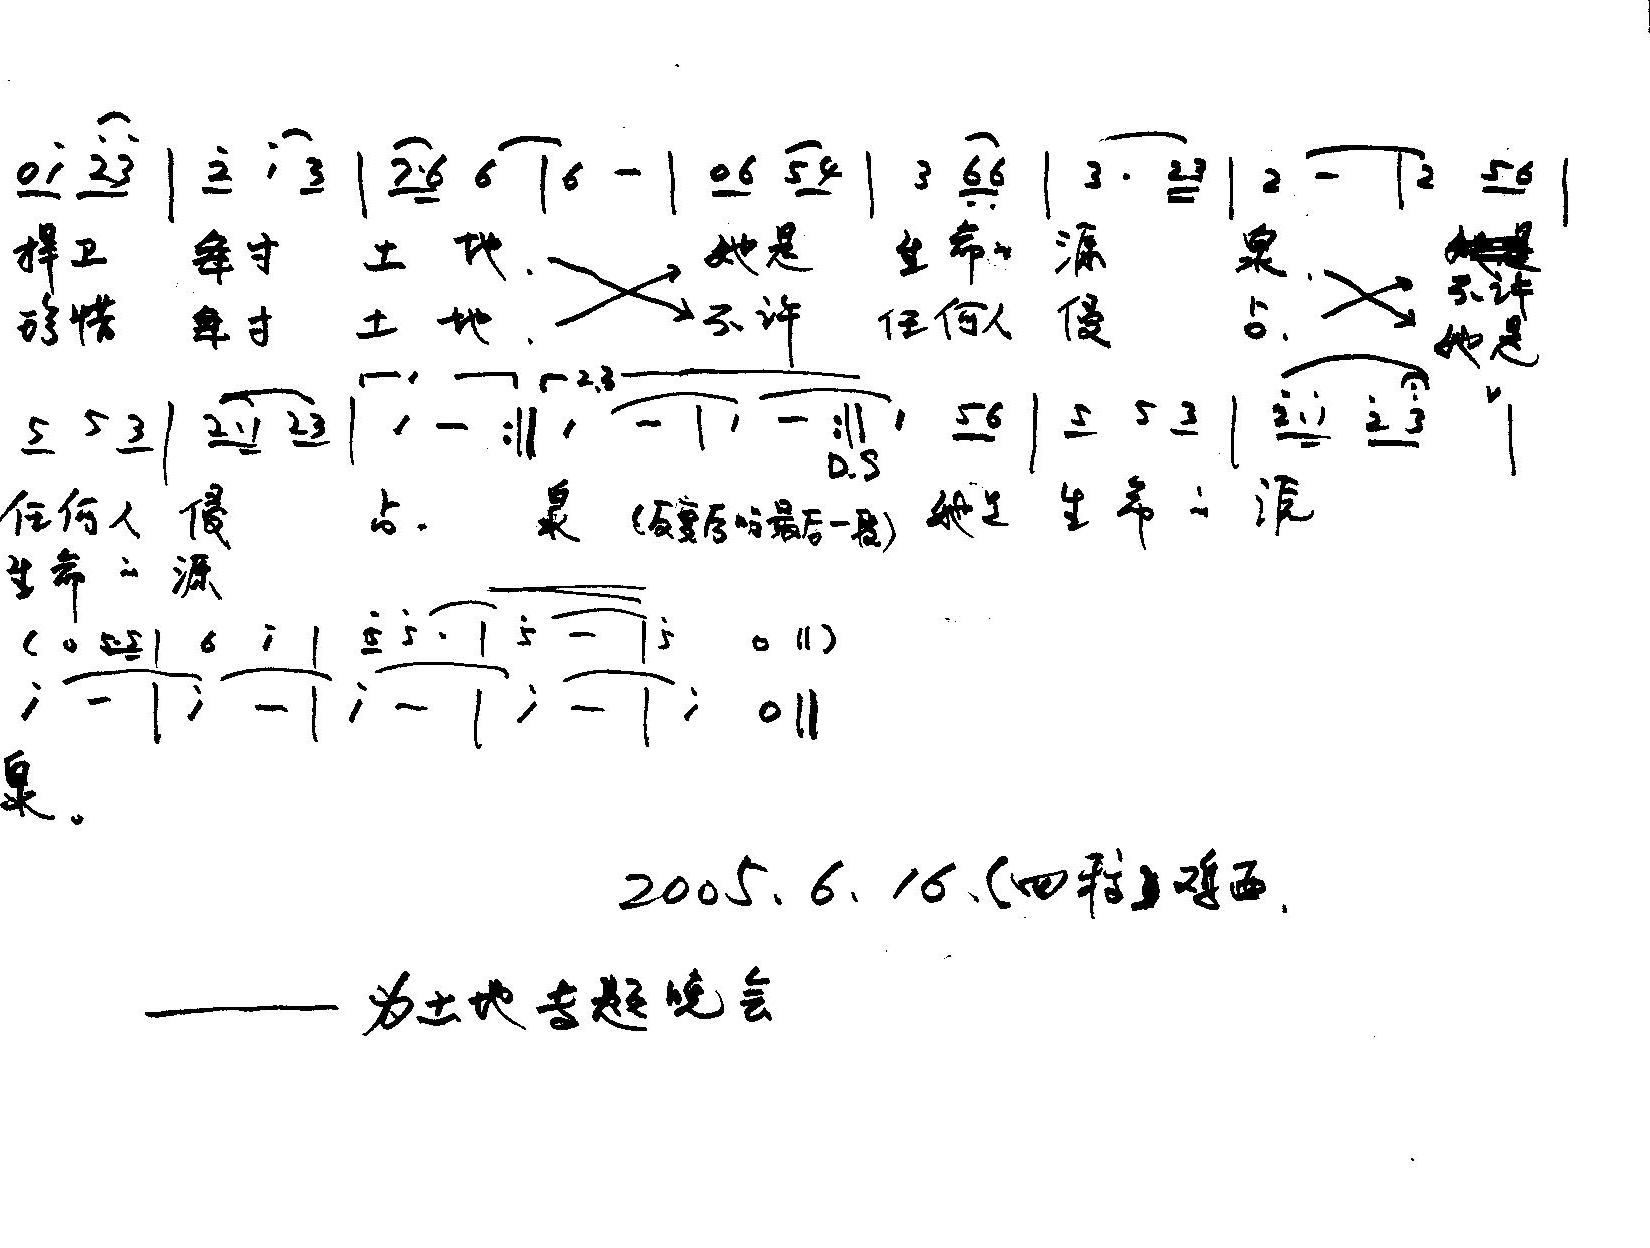 0i 23 | 2 i 3 | 2·6 6 | 6 - | 06 54 | 3 66 | 3 · 23 | 2 - | 2 56 |
捍卫 每寸 土 地. 她是 生命的 源 泉. 不许
珍惜 每寸 土 地. 不许 任何人 侵 占. 她是
1. 2.3
5 5 3 | 2·1 23 | 1 - :|| 1 - | 1 - :|| 1 56 | 5 5 3 | 2·1 2 3 |
D.S
任何人 侵 占. 泉 (反复后唱最后一段) 她是 生命的 源
生命的 源
(0 55 | 6 i | 5 5 · | 5 - | 5 0 ||)
i - | i - | i - | i - | i 0 ||
泉。
2005. 6. 16. (四稿) 鸡西.
—— 为土地专题晚会